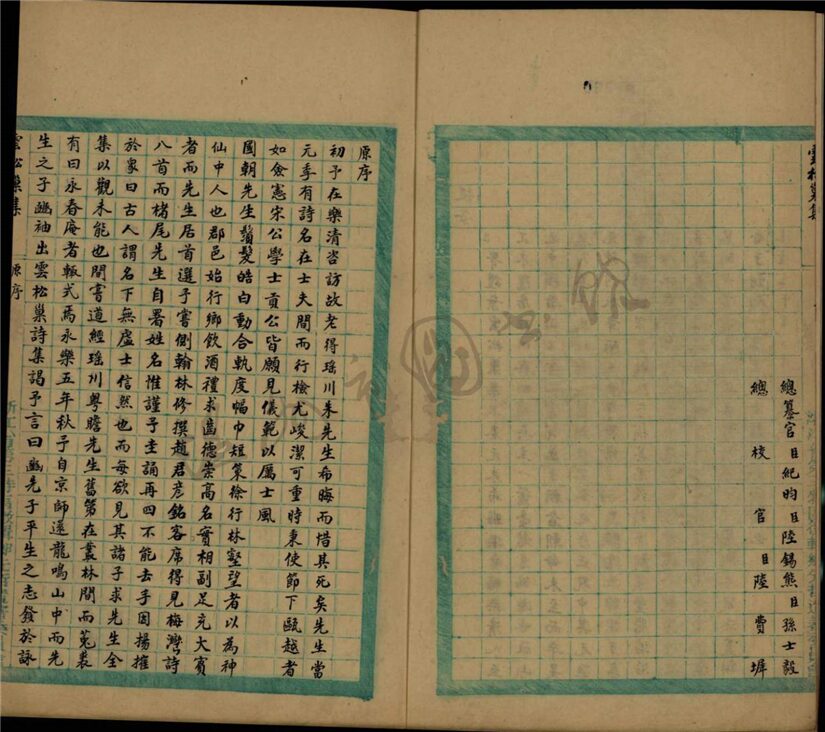 雲松巢集
總纂官臣紀昀臣陸錫熊臣孫士毅
總校官臣陸費墀
原序
初予在樂清咨訪故老得瑤川朱先生希晦而惜其死矣先生當
元季有詩名在士夫間而行檢尤峻潔可重時秉使節下甌越者
如僉憲宋公學士貢公皆願見儀範以厲士風
國朝先生鬚髮皓白動合軌度幅巾短策徐行林壑望者以為神
仙中人也郡邑始行鄉飲酒禮求齒德崇高名實相副足充大賓
者而先生居首選予嘗側翰林修撰趙君彥銘客席得見梅灣詩
八首而楮尾先生自署姓名惟謹予圭誦再四不能去手因揚搉
於家曰古人謂名下無虛士信然也而每欲見其諸子求先生全
集以觀未能也間嘗道經瑤川粵瞻先生舊第在叢林間而菟裘
有曰永春庵者輙式焉永樂五年秋予自京師還龍鳴山中而先
生之子幽袖出雲松巢詩集謁予言曰幽先子平生之志發於詠
雲松巢集 原序